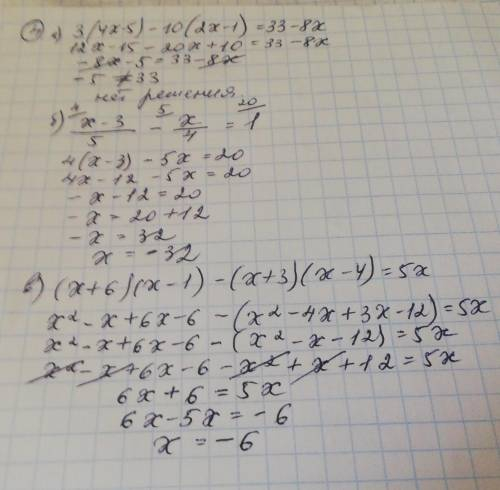 4 а) 3(4x-5) - 10(2x-1) = 33-8x
12x-15 - 20x+10 = 33-8x
-8x-5 = 33-8x
-5 ≠ 33
нет решения
б) ⁴(x-3)/5 - ⁵x/4 = ²⁰1
4(x-3) - 5x = 20
4x-12 - 5x = 20
-x-12 = 20
-x = 20+12
-x = 32
x = -32
в) (x+6)(x-1) - (x+3)(x-4) = 5x
x² - x + 6x - 6 - (x² - 4x + 3x - 12) = 5x
x² - x + 6x - 6 - (x² - x - 12) = 5x
x² - x + 6x - 6 - x² + x + 12 = 5x
6x + 6 = 5x
6x - 5x = -6
x = -6